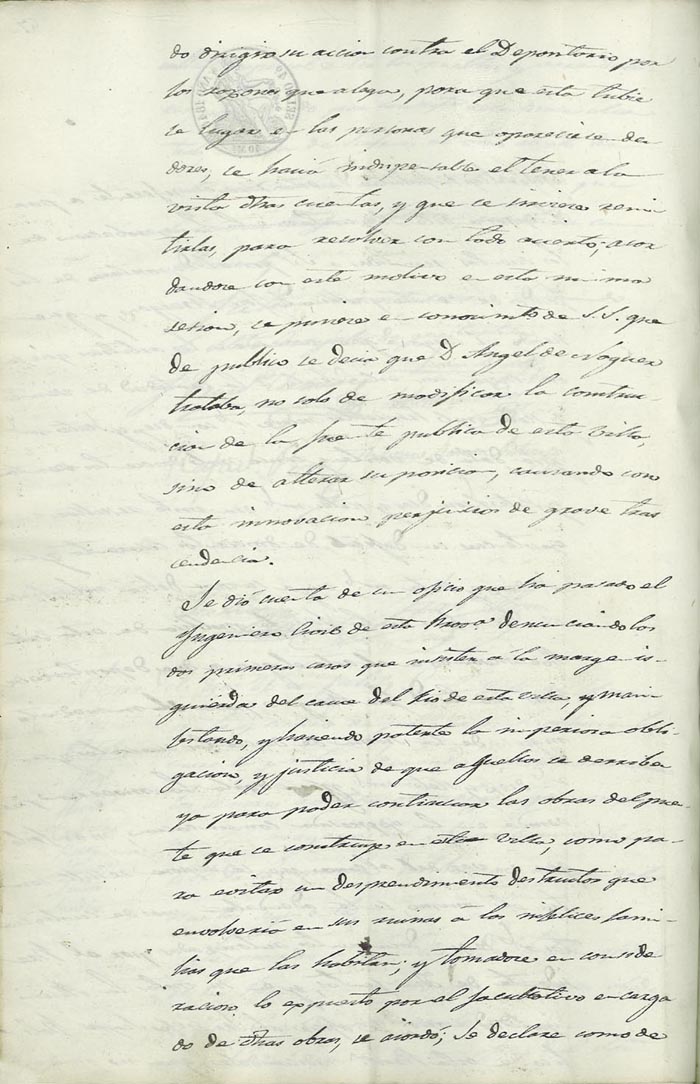 do dirigir su accion contra el Depositario por
las razones que alega, para que esta tubie
se lugar en las personas que apareciesen deu
dores, se hacia indispensable el tener a la
vista dhas cuentas, y que se sirviese remi
tirlas, para resolver con todo acierto; acor
dandose con este motivo en esta misma
sesion, se pusiese en conocimto de S.S. que
de publico se decia que D Angel de Noguer
trataba, no solo de modificar la construc-
cion de la fuente publica de esta villa,
sino de alterar su posicion, causando con
esta innovacion perjuicios de grave tras
cendencia.
Se dió cuenta de un oficio que ha pasado el
Ingeniero Civil de esta Prova denunciando los
dos primeras casas que insisten á la margen is-
quierda del cauce del rio de esta villa, y mani
festando, y haciendo patente la imperiosa obli-
gacion, y justicia de que aquellas se derriben
ya para poder continuar las obras del puen-
te que se construye en esta villa, como pa-
ra evitar un desprendimiento destructor que
envolveria en sus ruinas á las infelices fami-
lias que las habitan; y tomandose en conside
racion lo expuesto por el facultativo encarga
do de dhas obras, se acordó; Se declare como de